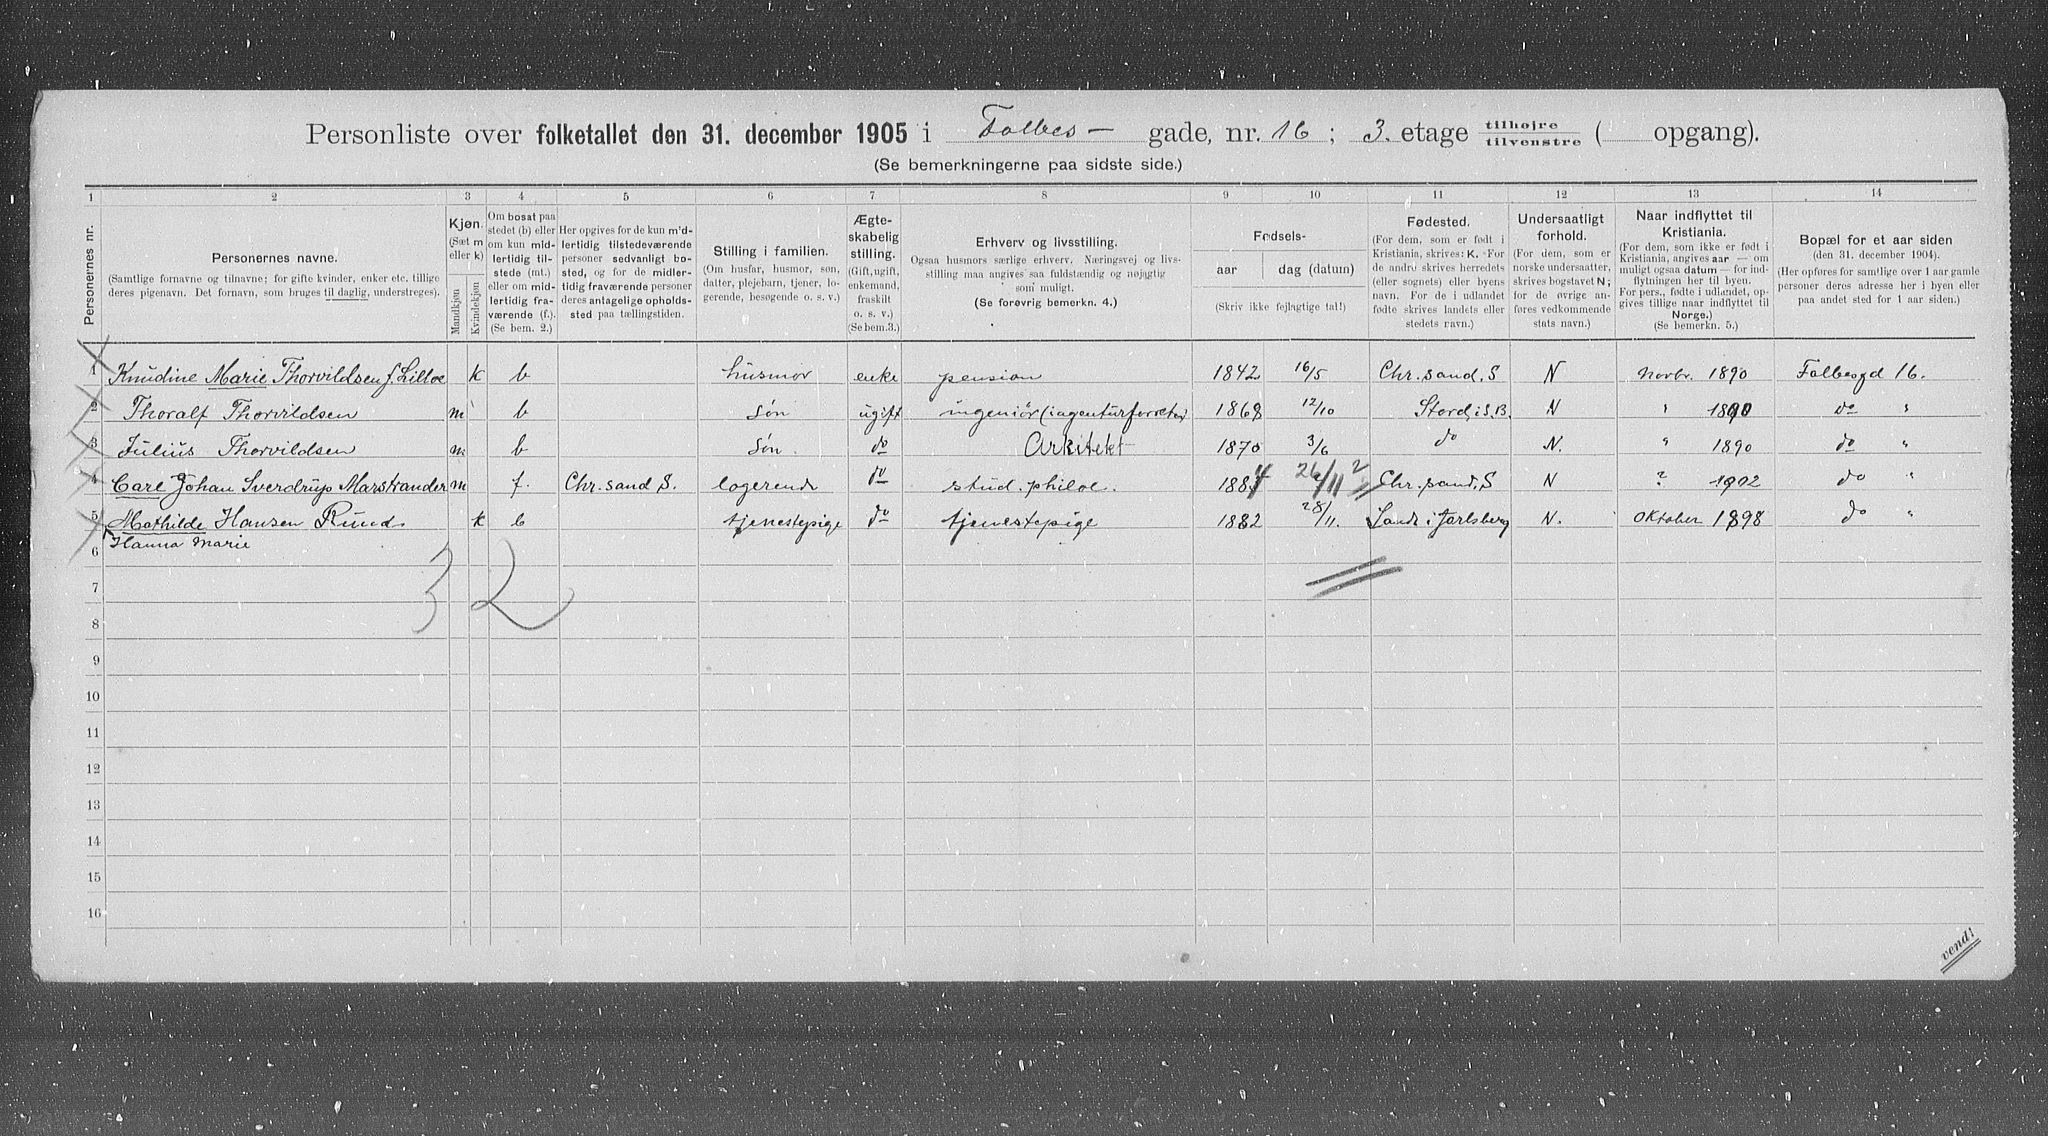 Personliste over folketallet den 31. december 1905 i Falbes — gade, nr. 16 ; 3. etage tilhøjre tilvenstre ( opgang).
(Se bemerkningerne paa sidste side.)
1 2 3 4 5 6 7 8 9 10 11 12 13 14
Personernes nr.
Personernes navne.
(Samtlige fornavne og tilnavne; for gifte kvinder, enker etc. tillige
deres pigenavn. Det fornavn, som bruges til daglig, understreges).
Kjøn.
(Sæt m
eller k)
Mandkjøn
Kvindekjøn
Om bosat paa
stedet (b) eller
om kun mid-
lertidig til-
stede (mt.)
eller om mid-
lertidig fra-
værende (f.).
(Se bem. 2.)
Her opgives for de kun m'd-
lertidig tilstedeværende
personer sedvanligt bo-
sted, og for de midler-
tidig fraværende personer
deres antagelige opholds-
sted paa tællingstiden.
Stilling i familien.
(Om husfar, husmor, søn,
datter, plejebarn, tjener, lo-
gerende, besøgende o. s. v.)
Ægte-
skabelig
stilling.
(Gift, ugift,
enkemand,
fraskilt
o. s. v.)
(Se bem.3.)
Erhverv og livsstilling.
Ogsaa husmors særlige erhverv. Næringsvej og livs-
stilling maa angives saa fuldstændig og nøjagtig
som muligt.
(Se forøvrig bemerkn. 4.)
Fødsels-
aar
dag (datum)
(Skriv ikke fejlagtige tal!)
Fødested.
(For dem, som er født i
Kristiania, skrives: K. For
de andre skrives herredets
(eller sognets) eller byens
navn. For de i udlandet
fødte skrives landets eller
stedets navn.)
Undersaatligt
forhold.
(For dem, som er
norske undersaatter,
skrives bogstavet N;
for de øvrige an-
føres vedkommende
stats navn.)
Naar indflyttet til
Kristiania.
(For dem, som ikke er født i
Kristiania, angives aar — om
muligt ogsaa datum — for ind-
flytningen her til byen.
For pers., fødte i udlandet, op-
gives tillige naar indflyttet til
Norge.)
(Se bemerkn. 5.)
Bopæl for et aar siden
(den 31. december 1904).
(Her opføres for samtlige over 1 aar gamle
personer deres adresse her i byen eller
paa andet sted for 1 aar siden.)
1 Knudine Marie Thorvildsen f. Lilloe k b husmor enke pension 1842 16/5 Chr.sand. S N Novbr. 1890 Falbesgd 16.
2 Thoralf Thorvildsen m b søn ugift ingeniør (agenturforretn) 1868 12/10 Stord i S.B. N " 1890 do "
3 Julius Thorvildsen m b søn. do Arkitekt 1870 3/6 do N. " 1890 do "
4 Carl Johan Sverdrup Marstrander m f. Chr.sand S. logerende do stud. philoe. 26/11 2 Chr.sand. S N ? 1902 do "
5 Mathilde Hansen Ruud. k b tjenestepige do tjenestepige 1882 28/11. Sande i Jarlsberg N. Oktober 1898 do "
Hanna Marie
6
3 2
7
8
9
10
11
12
13
14
15
16
vend!